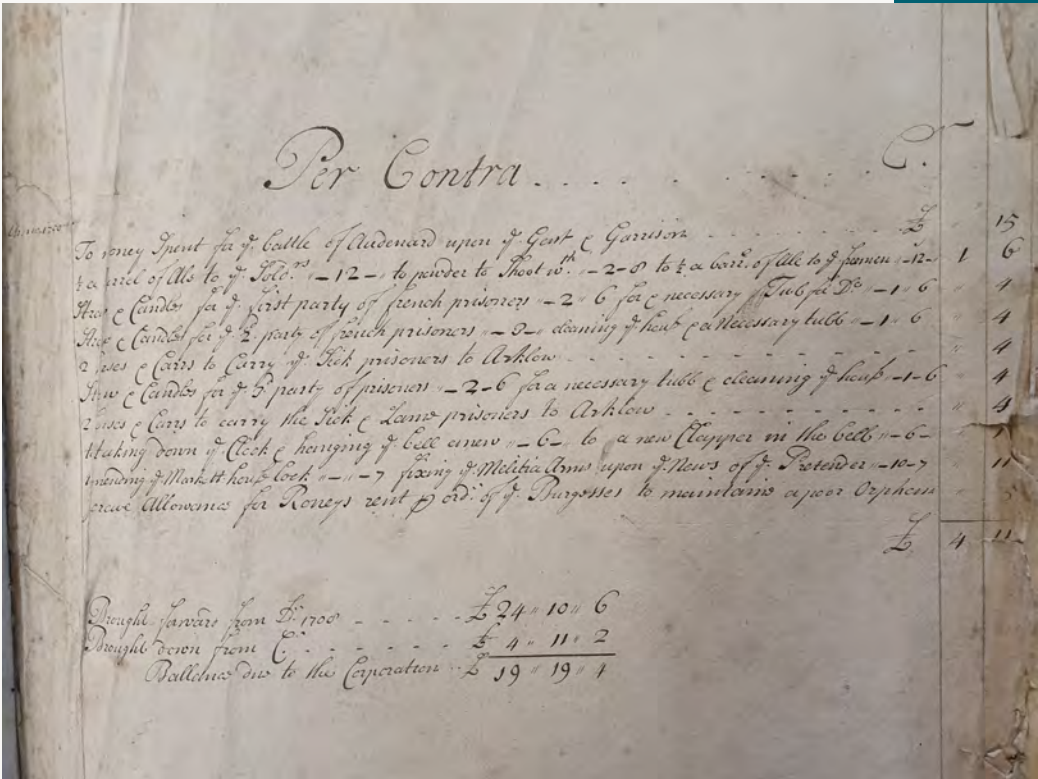 Per Contra . . . . . . . . . . Cr.
To money Spent for ye. battle of Audenard upon ye. Gart & Garrison . . . . . . . . £ " 15
½ a barrel of Ale to ye. Soldrs. "–12–" to powder to Shoot wth. "–2–8 to ½ a barl. of Ale to ye. –12– 1 6
Straw & Candles for ye. first party of french prisoners "–2"6 for a necessary Tub for Do. "–1"6 " 4
Straw & Candles for ye. 2d. party of french prisoners "–3–" cleaning ye. house & a Necessary tubb "–1"6 " 4
2 & Carrs to Carry ye. Sick prisoners to Arklow . . . . . . . . . . " 4
Straw & Candles for ye. party of prisoners "–2–6 for a necessary tubb & cleaning ye. house "–1–6 " 4
2 & Carrs to carry the Sick & Lame prisoners to Arklow . . . . . . . . . . " 4
taking down ye. Clock & hanging ye. bell anew "–6–" to a new Clapper in the bell "–6–
mending ye. Markett house lock "–"–7 fixing ye. Melitia Arms upon ye. News of ye. Pretender "–10–7 " 11
Allowance for Roneys rent p ordr. of ye. Burgesses to maintaine a poor Orphan " 5
£ 4 11
Brought forward from Dr. 1708 . . . . . £ 24 " 10 " 6
Brought down from Cr. . . . . . . £ 4 " 11 " 2
Ballance due to the Corporation . . £ 19 " 19 " 4